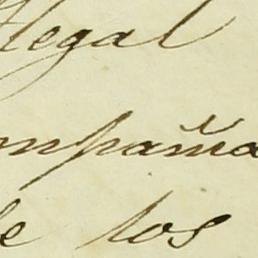 legal
mpaña
de los